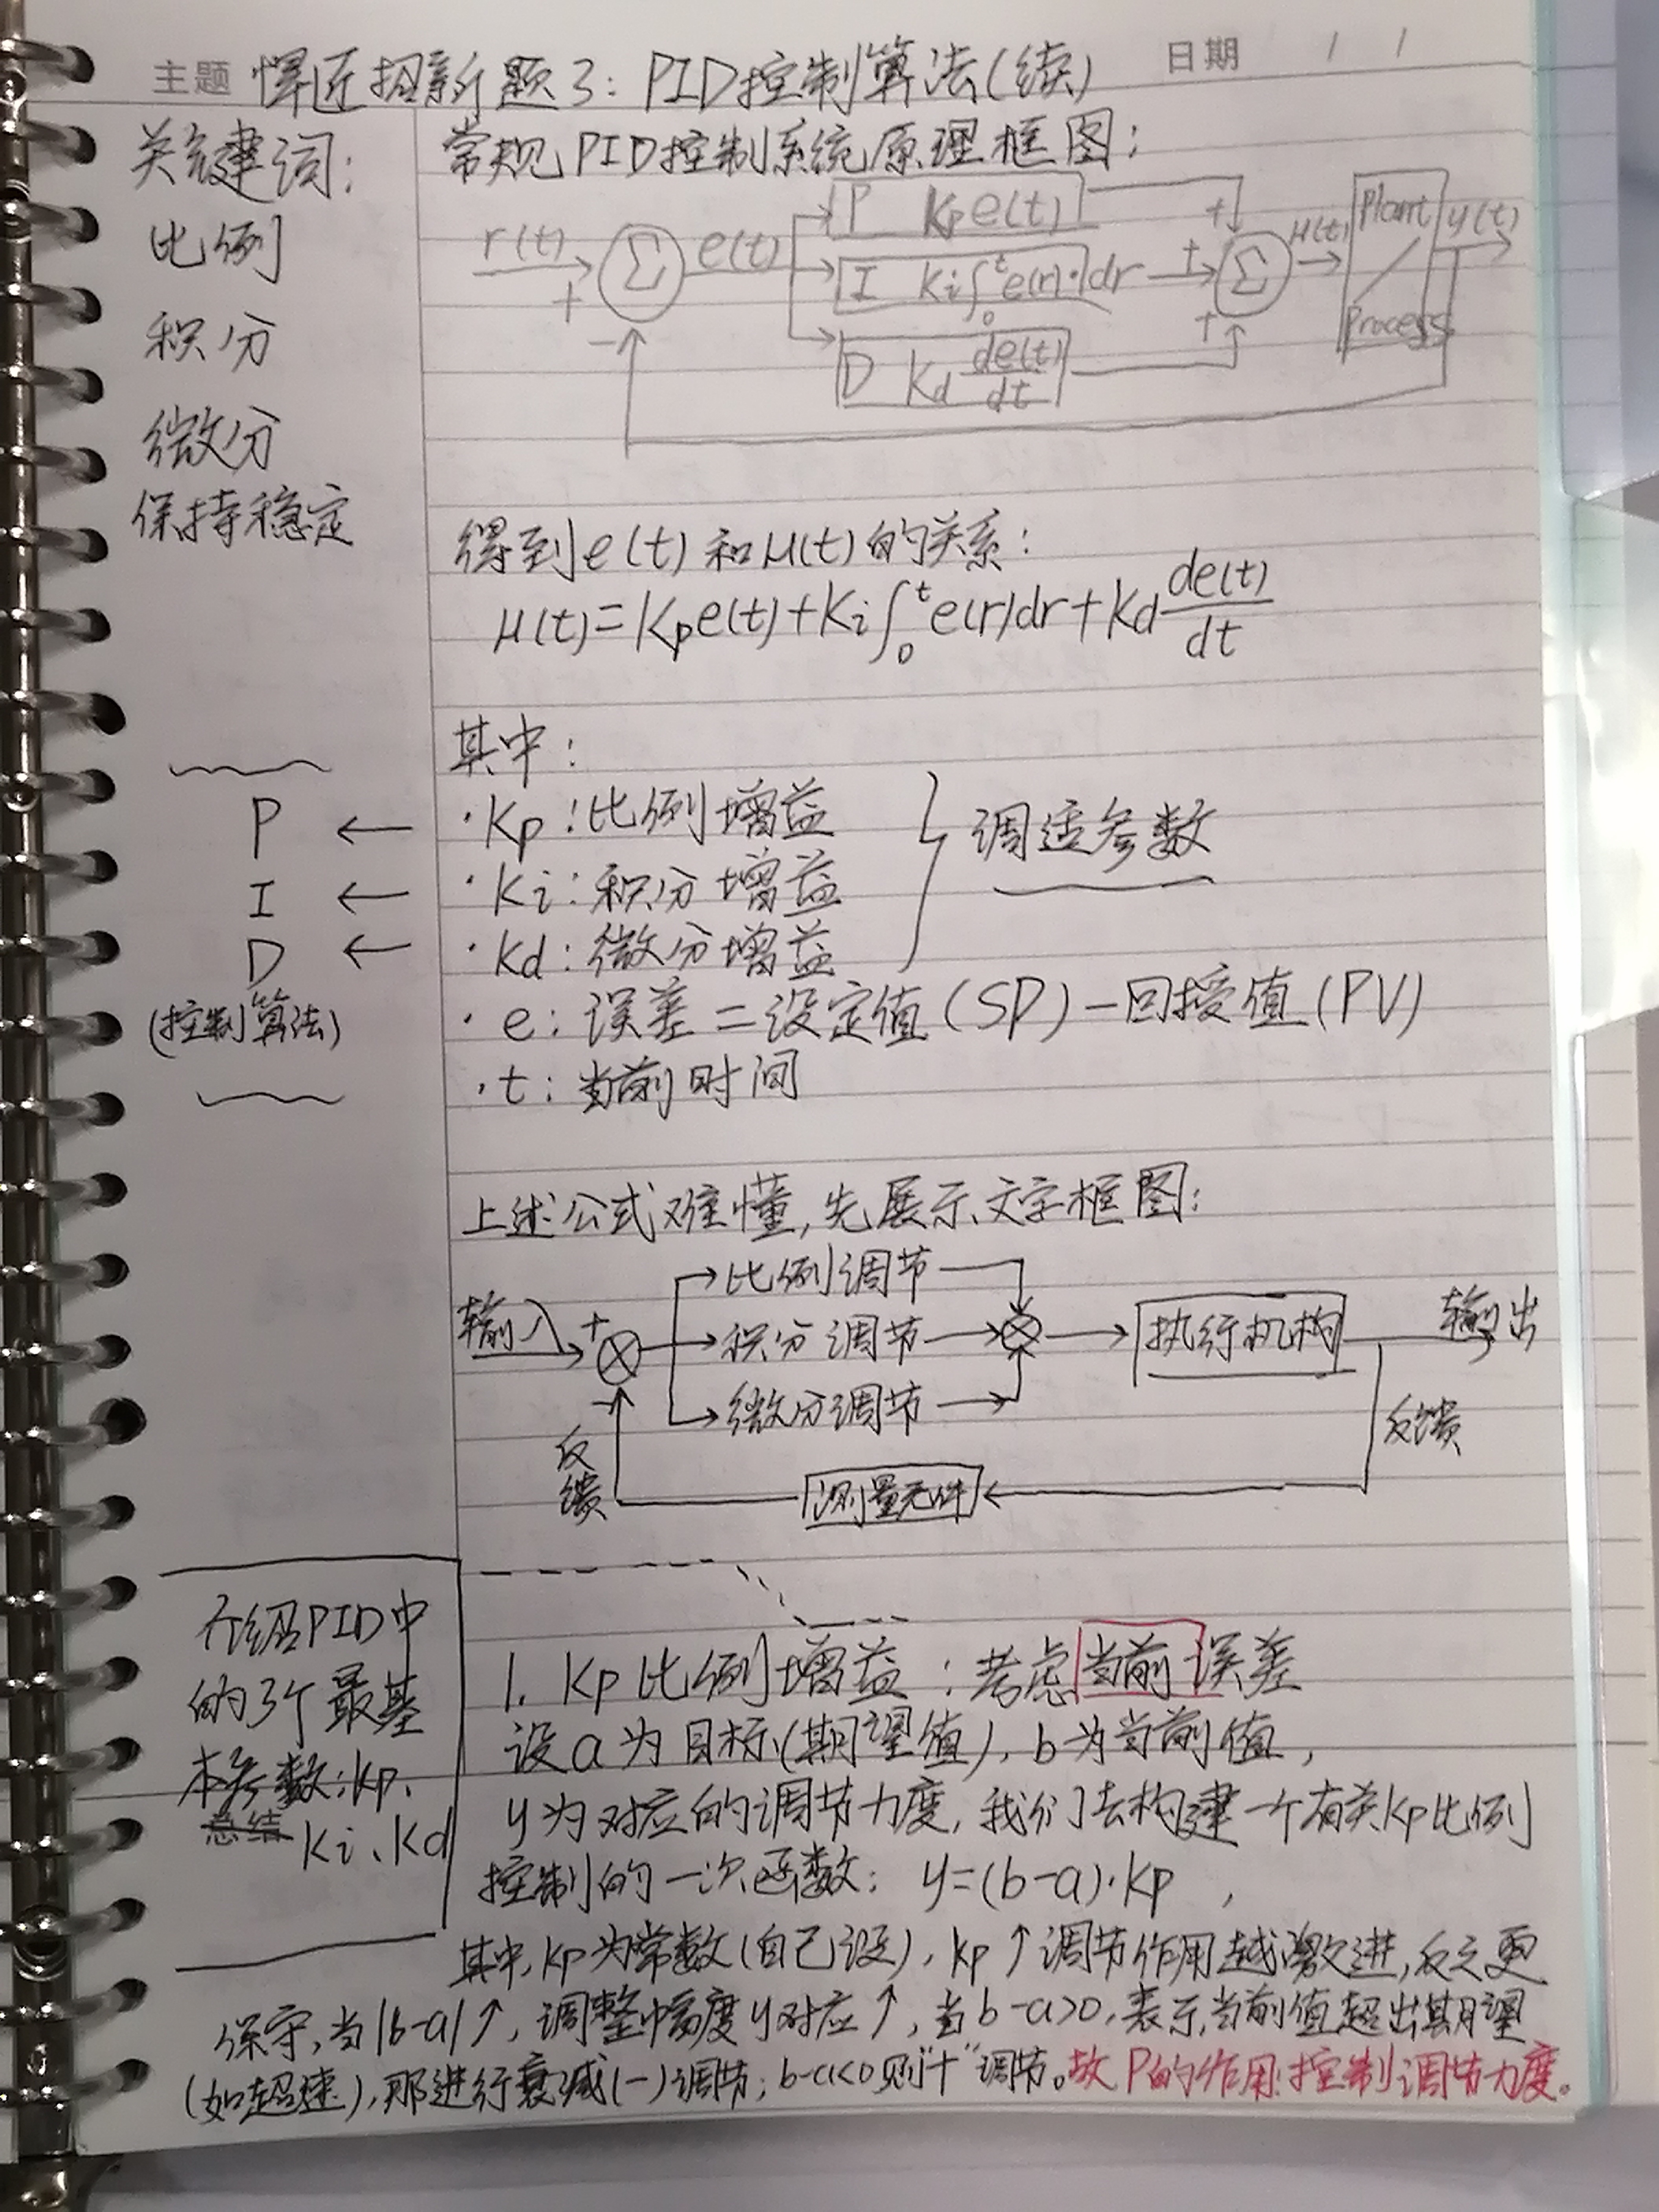 主题 悍匠招新题3：PID控制算法(续) 日期 / /
关键词：
比例
积分
微分
保持稳定
常规PID控制系统原理框图：
r(t) + − Σ e(t)
P Kp e(t)
I Ki∫₀ᵗ e(r)·dr
D Kd de(t)/dt
+ + + Σ μ(t) Plant / Process y(t)
得到e(t)和μ(t)的关系：
μ(t)=Kp e(t)+Ki∫₀ᵗ e(r)dr+Kd de(t)/dt
其中：
P ← ·Kp：比例增益
I ← ·Ki：积分增益
D ← ·Kd：微分增益
(控制算法)
} 调适参数
·e：误差＝设定值(SP)－回授值(PV)
·t：当前时间
上述公式难懂，先展示文字框图：
输入 + − ⊗
比例调节
积分调节
微分调节
⊗ 执行机构 输出
反馈 测量元件 反馈
介绍PID中
的3个最基
本参数：Kp、
总结 Ki、Kd
1. Kp比例增益：考虑当前误差
设a为目标(期望值)，b为当前值，
y为对应的调节力度，我们去构建一个有关Kp比例
控制的一次函数：y=(b-a)·Kp，
其中，Kp为常数(自己设)，Kp↑调节作用越激进，反之更
保守，当|b-a|↑，调整幅度y对应↑，当b-a>0，表示当前值超出期望
(如超速)，那进行衰减(－)调节；b-a<0则"＋"调节。故P的作用：控制调节力度。